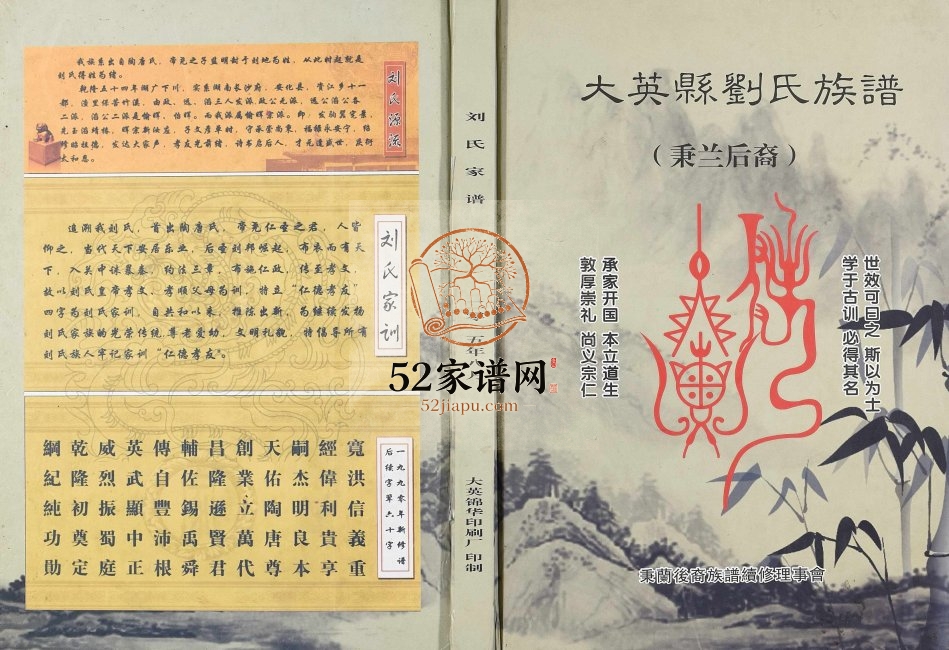 大英縣劉氏族譜
（秉兰后裔）
世效可曰之 斯以为士
学于古训 必得其名
承家开国 本立道生
敦厚崇礼 尚义宗仁
秉蘭後裔族譜續修理事會
刘氏家谱
五年
大英锦华印刷厂 印制
52家谱网
52jiapu.com
刘氏源流
我族系出自陶唐氏，帝尧之子监明封于刘地为姓，从此时起就是
刘氏得姓为绪。
乾隆五十四年湖广下川，实系湖南长沙府，安化县，资江乡十一
都，渔里保苦竹溪，由政、远、滔三人发派，政公无派，远公滔公各
二派，滔公二派是翰辉，怡辉。而我派属翰辉宗派。即，发的冀完景，
先玉滔靖栋，辉宗新汝左，子文彦单时，守承荣尚东，福禄永安宁，绍
修昭祖德，发达大家声，孝友光前绪，诗书启后人，才元逢盛世，庆衍
太和恩。
刘氏家训
追溯我刘氏，首出陶唐氏，帝尧仁圣之君，人皆
仰之，当代天下安居乐业，后至刘邦崛起，布衣而有天
下，入关中诛暴秦，约法三章，布施仁政，传至孝文，
故以刘氏皇帝孝文、孝顺父母为训，特立“仁德孝友”
四字为刘氏家训，自兹和以来，推陈出新，为继续发扬
刘氏家族的光荣传统，尊老爱幼，文明礼貌，特倡导所有
刘氏族人牢记家训“仁德孝友”。
一九九零年新修谱
后续字辈六十字
寬洪信義重
經偉利貴享
嗣杰明良本
天佑陶唐尊
創業立萬代
昌隆遜賢君
輔佐錫禹舜
傳自豐沛根
英武顯中正
威烈振蜀庭
乾隆初奠定
綱紀純功勛